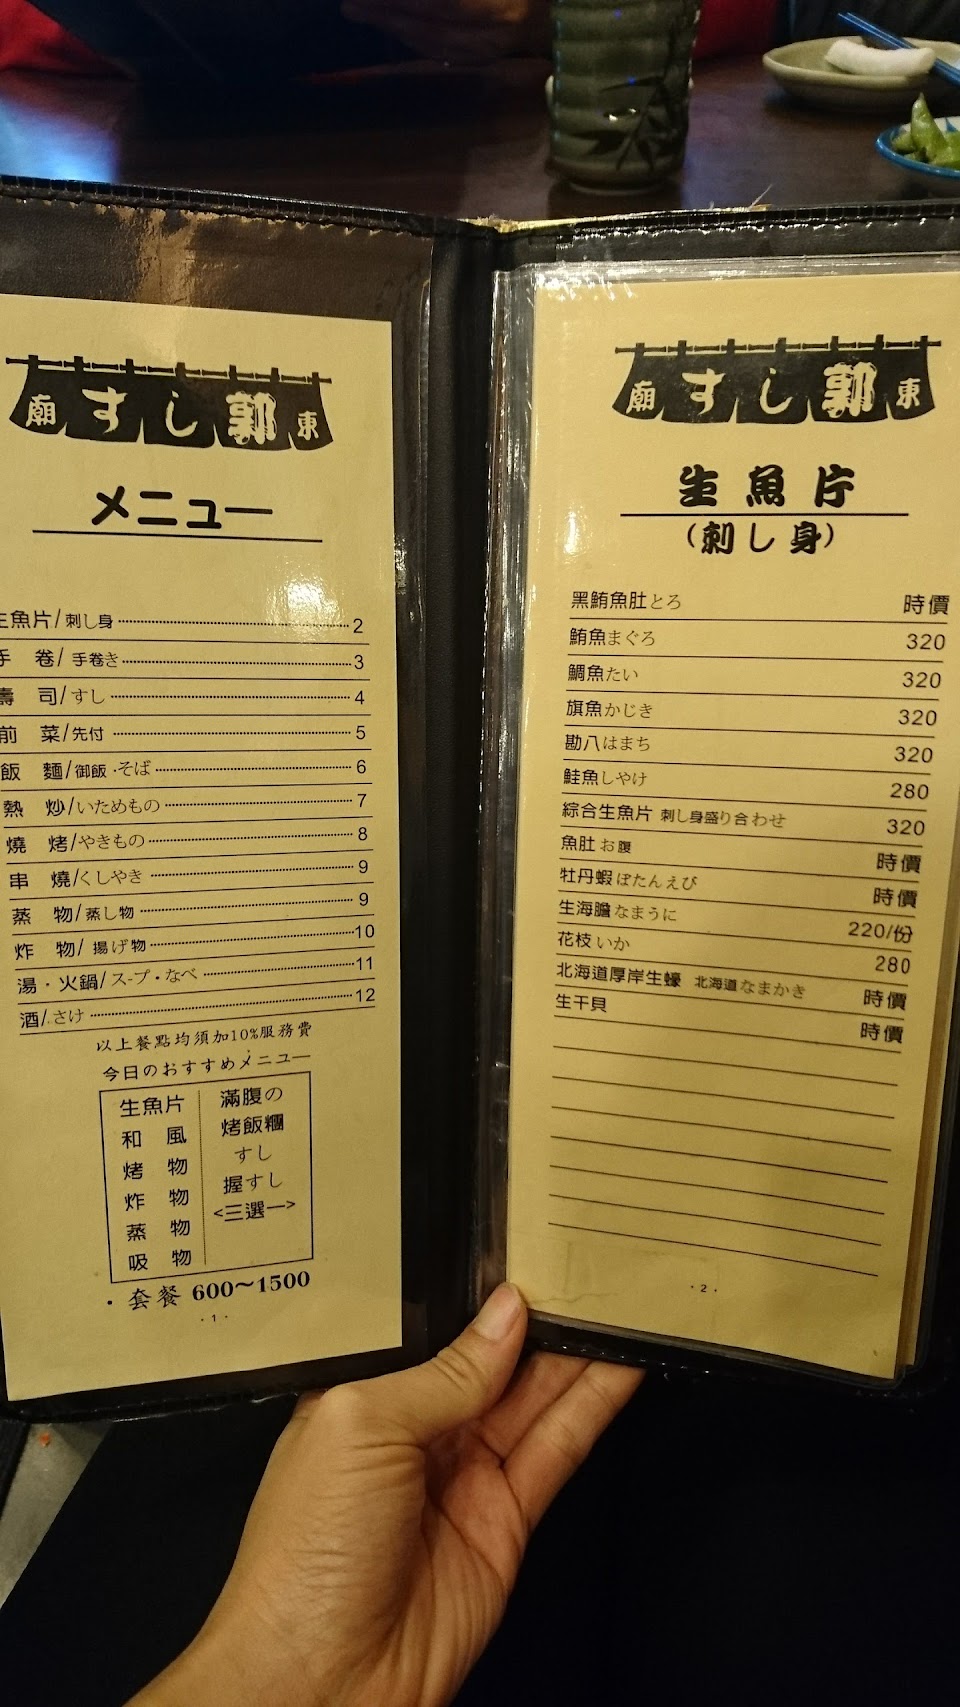 廟すし郭東
メニュー
生魚片/刺し身 2
手 卷/手卷き 3
壽 司/すし 4
前 菜/先付 5
飯 麵/御飯・そば 6
熱 炒/いためもの 7
燒 烤/やきもの 8
串 燒/くしやき 9
蒸 物/蒸し物 9
炸 物/揚げ物 10
湯・火鍋/スープ・なべ 11
酒/さけ 12
以上餐點均須加10%服務費
今日のおすすめメニュー
生魚片
和 風
烤 物
炸 物
蒸 物
吸 物
滿腹の
烤飯糰
すし
握すし
<三選一>
・套餐 600~1500
・1・
廟すし郭東
生魚片
(刺し身)
黑鮪魚肚とろ 時價
鮪魚まぐろ 320
鯛魚たい 320
旗魚かじき 320
勘八はまち 320
鮭魚しやけ 280
綜合生魚片 刺し身盛り合わせ 320
魚肚お腹 時價
牡丹蝦ぼたんえび 時價
生海膽なまうに 220/份
花枝いか 280
北海道厚岸生蠔 北海道なまかき 時價
生干貝 時價
・2・